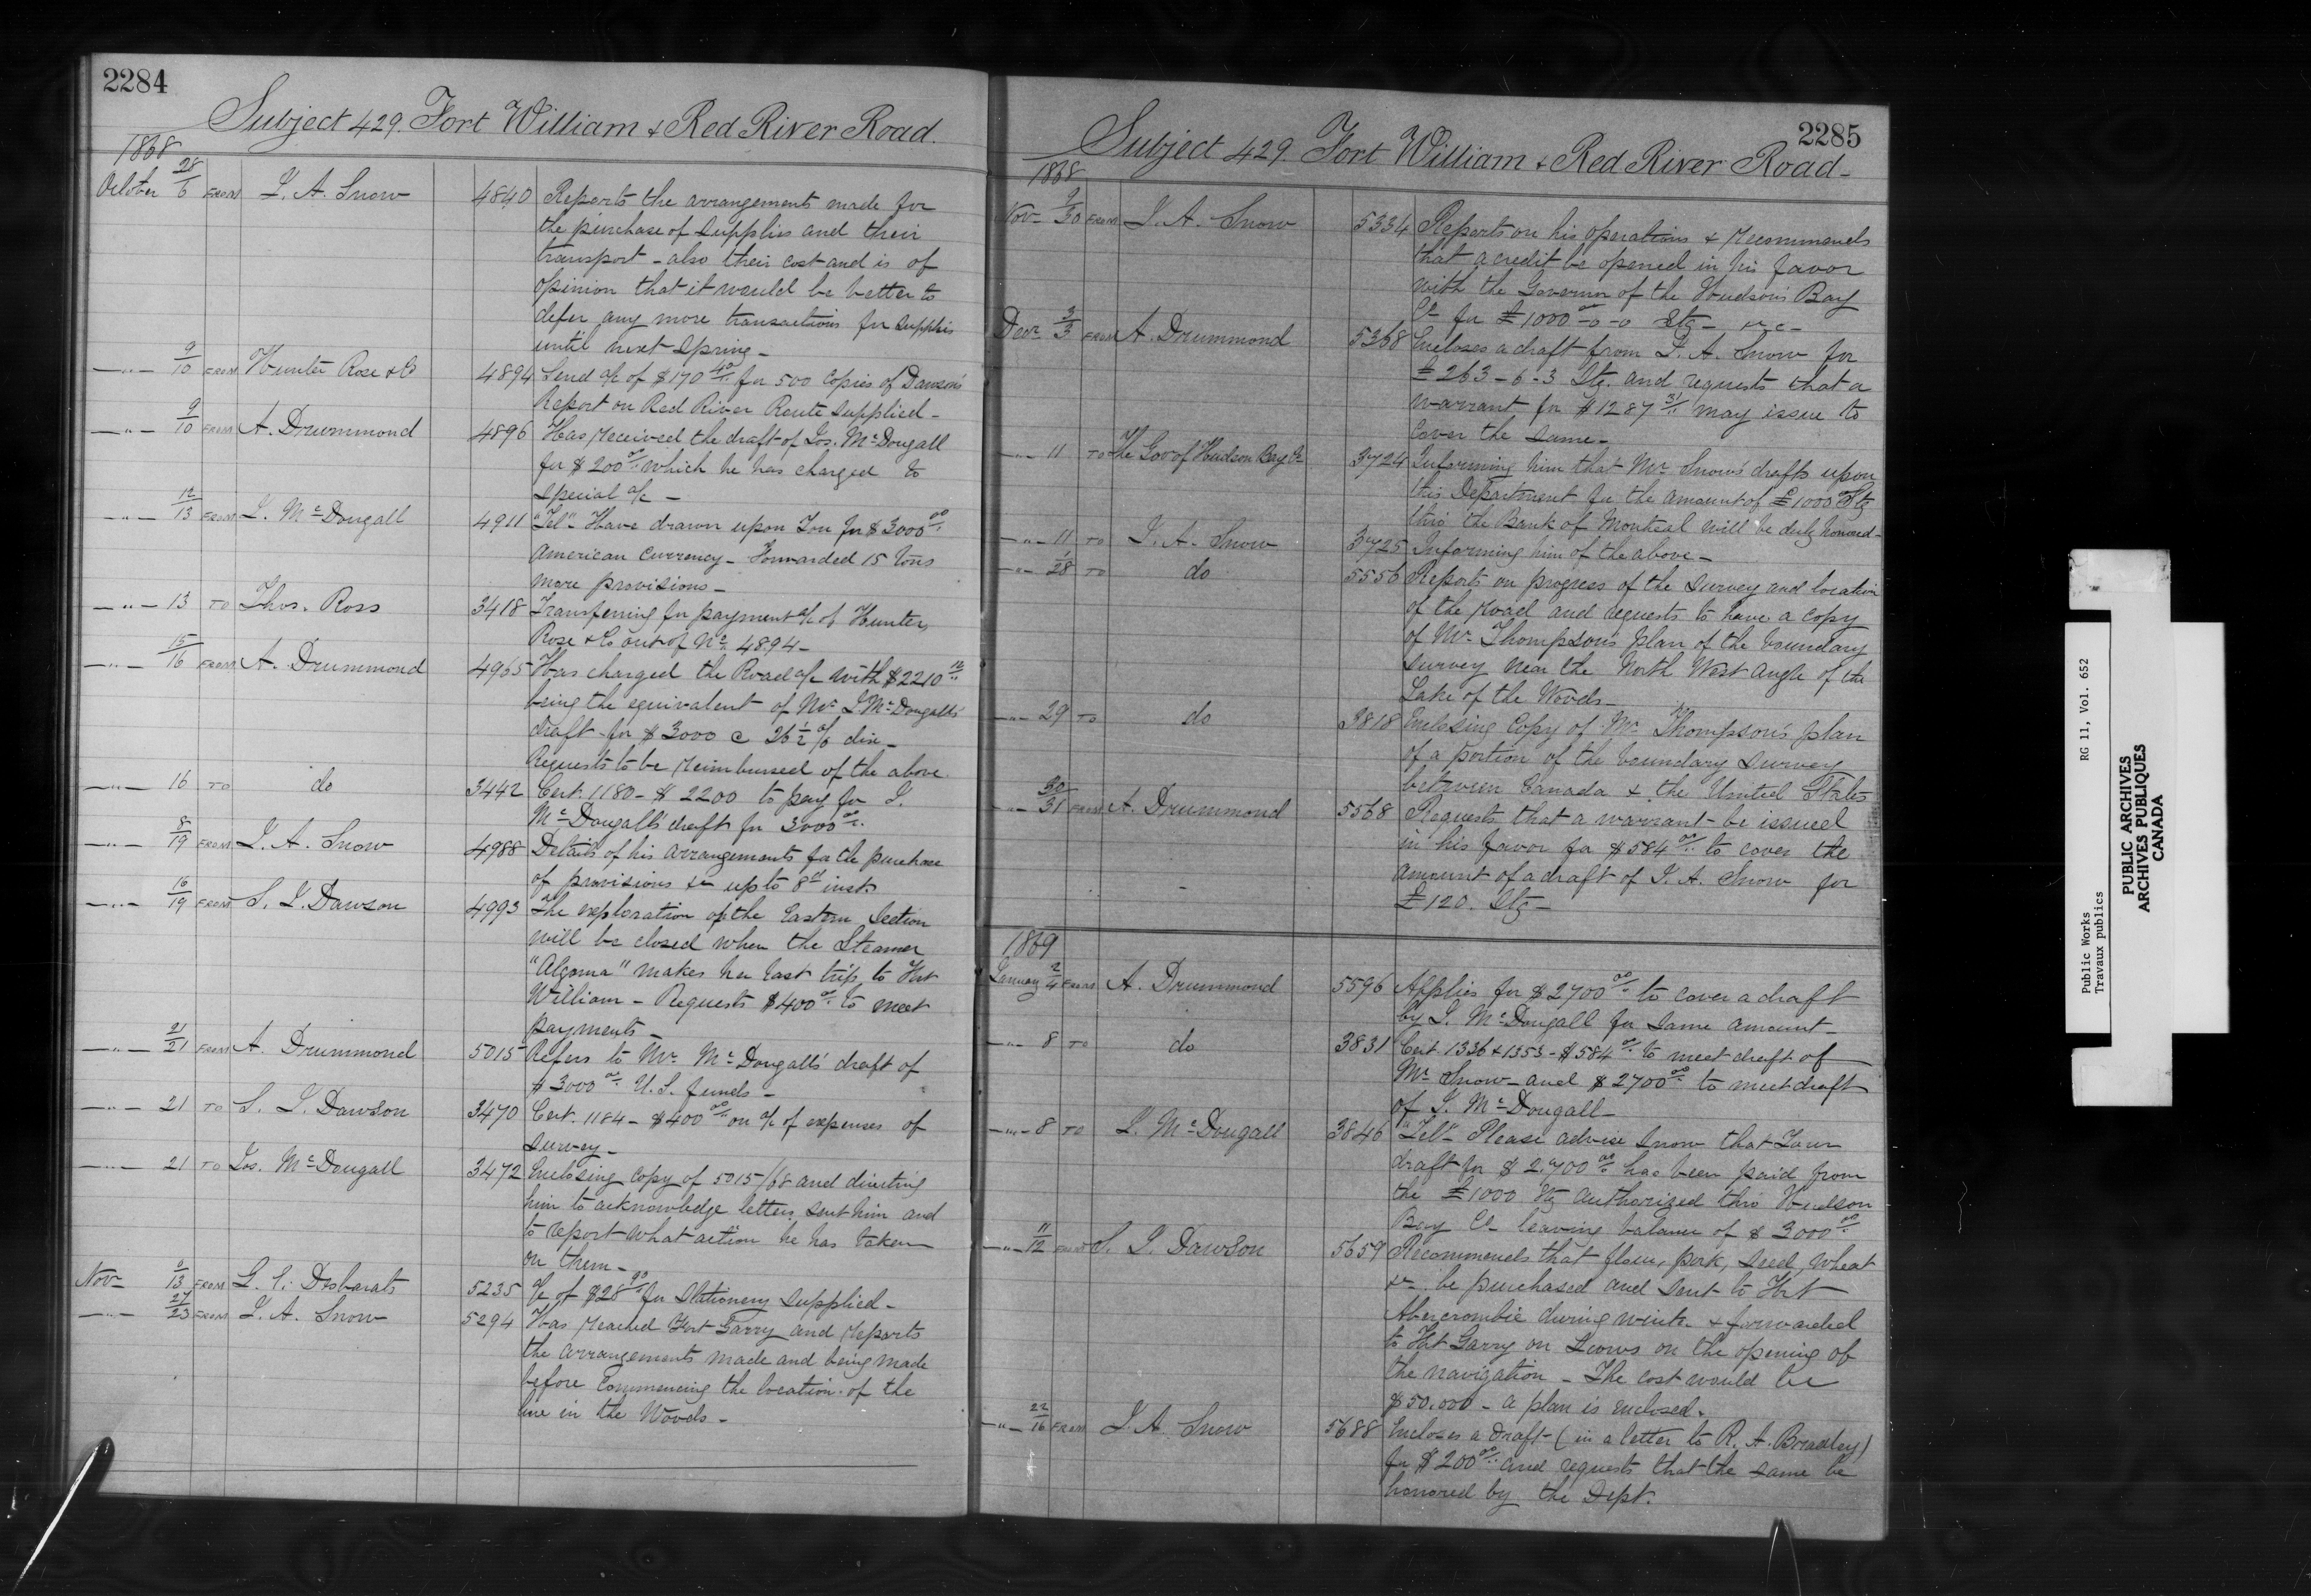 2284
Subject 429. Fort William & Red River Road.
1868
October 28/6 FROM J. A. Snow 4840 Reports the arrangements made for
the purchase of supplies and their
transport - also their cost and is of
opinion that it would be better to
defer any more transactions for supplies
until next Spring -
—"— 9/10 FROM Hunter Rose & Co 4894 Send a/c of $170 40/.. for 500 copies of Dawson's
Report on Red River Route supplied -
—"— 9/10 FROM A. Drummond 4896 Has received the draft of Jos. McDougall
for $200 00/.. which he has charged to
special a/c -
—"— 12/13 FROM J. McDougall 4911 "Tel" Have drawn upon You for $3000 00/..
American Currency - Forwarded 15 tons
more provisions -
—"— 13 TO Thos. Ross 3418 Transferring for payment a/c of Hunter,
Rose & Co out of No 4894 -
—"— 15/16 FROM A. Drummond 4965 Has charged the Road a/c with $2210 12/..
being the equivalent of Mr J McDougall's
draft for $3000 @ 26 1/2 % dis -
Requests to be reimbursed of the above.
—"— 16 TO do 3442 Cert. 1180 - $2200 to pay for J.
McDougall's draft for 3000 00/..
—"— 8/19 FROM J. A. Snow 4988 Details of his arrangements for the purchase
of provisions &c up to 8th inst.
—"— 16/19 FROM S. J. Dawson 4993 The exploration of the Eastern Section
will be closed when the Steamer
"Algoma" makes her last trip to Fort
William - Requests $400 00/.. to meet
payments -
—"— 21/21 FROM A. Drummond 5015 Refers to Mr. McDougall's draft of
$3000 00/.. U.S. funds -
—"— 21 TO S. J. Dawson 3470 Cert. 1184 - $400 00/.. on a/c of expenses of
survey -
—"— 21 TO Jos. McDougall 3472 Enclosing copy of 5015/68 and directing
him to acknowledge letters sent him and
to report what action he has taken
on them -
Nov- 9/13 FROM G. E. Desbarats 5235 a/c of $28 90/.. for Stationery supplied -
—"— 27/23 FROM J. A. Snow 5294 Has reached Fort Garry and reports
the arrangements made and being made
before commencing the location of the
line in the Woods -
2285
Subject 429. Fort William & Red River Road -
1868
Nov- 9/30 FROM J. A. Snow 5334 Reports on his operations & recommends
that a credit be opened in his favor
with the Governor of the Hudson's Bay
Co for £1000-0-0 Stg - &c -
Decr 3/3 FROM A. Drummond 5368 Encloses a draft from J. A. Snow for
£263-6-3 Stg. and requests that a
warrant for $1287 31/.. may issue to
cover the same -
—"— 11 TO The Gov of Hudson Bay Co 3724 Informing him that Mr Snow's drafts upon
this Department for the amount of £1000 Stg
thro the Bank of Montreal will be duly honored -
—"— 11 TO J. A. Snow 3725 Informing him of the above -
—"— 1/28 TO do 5556 Reports on progress of the survey and location
of the road and requests to have a copy
of Mr Thompson's plan of the boundary
survey near the North West angle of the
Lake of the Woods -
—"— 29 TO do 3818 Enclosing Copy of Mr Thompson's plan
of a portion of the boundary survey
between Canada & the United States
—"— 30/31 FROM A. Drummond 5568 Requests that a warrant be issued
in his favor for $584 00/.. to cover the
amount of a draft of J. A. Snow for
£120. Stg -
1869
January 2/4 FROM A. Drummond 5596 Applies for $2700 00/.. to cover a draft
by J. McDougall for same amount -
—"— 8 TO do 3831 Cert. 1336 & 1353 - $584 00/.. to meet draft of
Mr Snow - and $2700 00/.. to meet draft
of J. McDougall -
—"— 8 TO J. McDougall 3846 "Tel" Please advise Snow that Your
draft for $2.700 00/.. has been paid from
the £1000 Stg authorized thro Hudson
Bay Co leaving balance of $3000 00/..
—"— 11/12 FROM S. J. Dawson 5659 Recommends that flour, pork, seed, wheat
&c be purchased and sent to Fort
Abercrombie during winter & forwarded
to Fort Garry on Scows on the opening of
the navigation - The cost would be
$50.000 - a plan is enclosed.
—"— 22/16 FROM J. A. Snow 5688 Encloses a draft (in a letter to R. A. Bradley)
for $200 00/.. and requests that the same be
honored by the Dept.
Public Works RG 11, Vol. 652
Travaux publics
PUBLIC ARCHIVES
ARCHIVES PUBLIQUES
CANADA